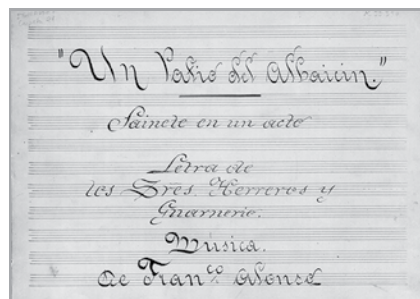 "Un Patio del Albaicin."
Sainete en un acto
Letra de
los Sres. Herreros y
Guarnerie.
Música.
de Fran.co Alonso